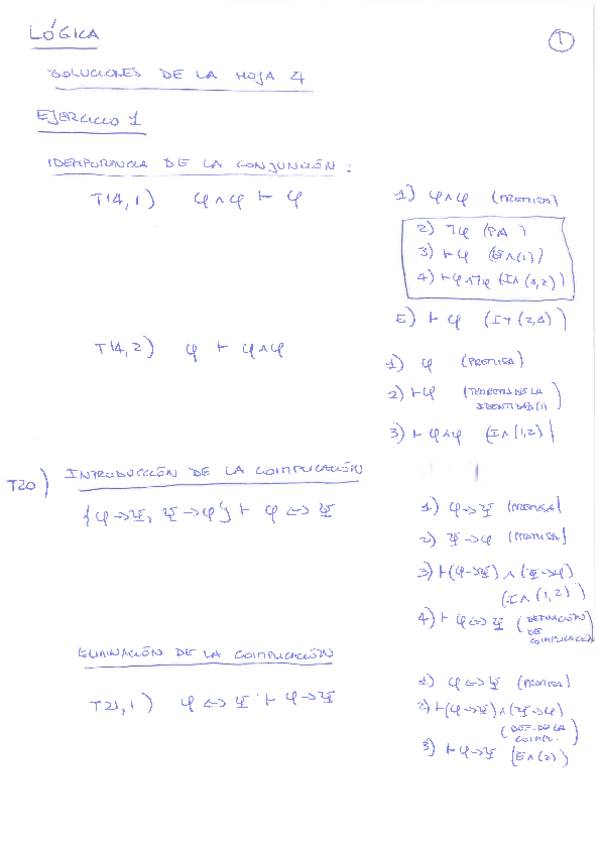 LÓGICA
1
SOLUCIONES DE LA HOJA 4
EJERCICIO 1
IDEMPOTENCIA DE LA CONJUNCIÓN:
T14,1) φ∧φ ⊢ φ
1) φ∧φ (PREMISA)
2) ¬φ (PA)
3) ⊢φ (E∧(1))
4) ⊢φ∧¬φ (I∧(3,2))
5) ⊢ φ (I¬(2,4))
T14,2) φ ⊢ φ∧φ
1) φ (PREMISA)
2) ⊢φ (TEOREMA DE LA
IDENTIDAD(1))
3) ⊢ φ∧φ (I∧(1,2))
T20) INTRODUCCIÓN DE LA COIMPLICACIÓN
{φ→Ψ, Ψ→φ} ⊢ φ↔Ψ
1) φ→Ψ (PREMISA)
2) Ψ→φ (PREMISA)
3) ⊢(φ→Ψ)∧(Ψ→φ)
(I∧(1,2))
4) ⊢ φ↔Ψ (DEFINICIÓN
DE
COIMPLICACIÓN)
ELIMINACIÓN DE LA COIMPLICACIÓN
T21,1) φ↔Ψ ⊢ φ→Ψ
1) φ↔Ψ (PREMISA)
2) ⊢(φ→Ψ)∧(Ψ→φ)
(DEF. DE LA
COIMP.)
3) ⊢φ→Ψ (E∧(2))